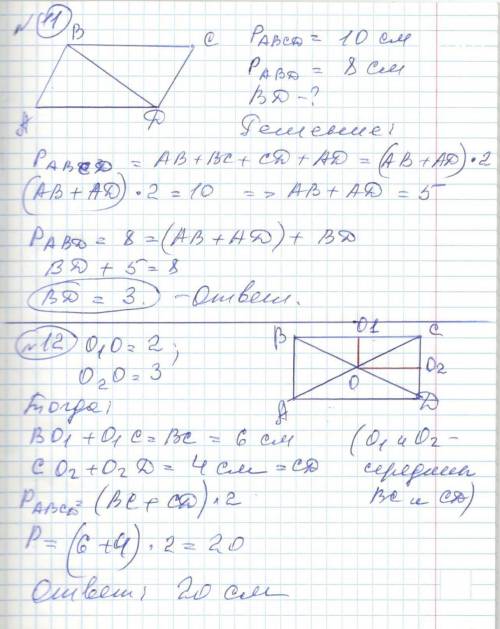 № 11
B C
A D
P ABCD = 10 см
P ABD = 8 см
BD - ?
Решение:
P ABCD = AB + BC + CD + AD = (AB + AD) · 2
(AB + AD) · 2 = 10 => AB + AD = 5
P ABD = 8 = (AB + AD) + BD
BD + 5 = 8
BD = 3. - Ответ.
№ 12 O1O = 2;
O2O = 3
B O1 C
O O2
A D
Тогда:
BO1 + O1C = BC = 6 см (O1 и O2 -
CO2 + O2D = 4 см = CD середины
P ABCD = (BC + CD) · 2 BC и CD)
P = (6 + 4) · 2 = 20
Ответ: 20 см